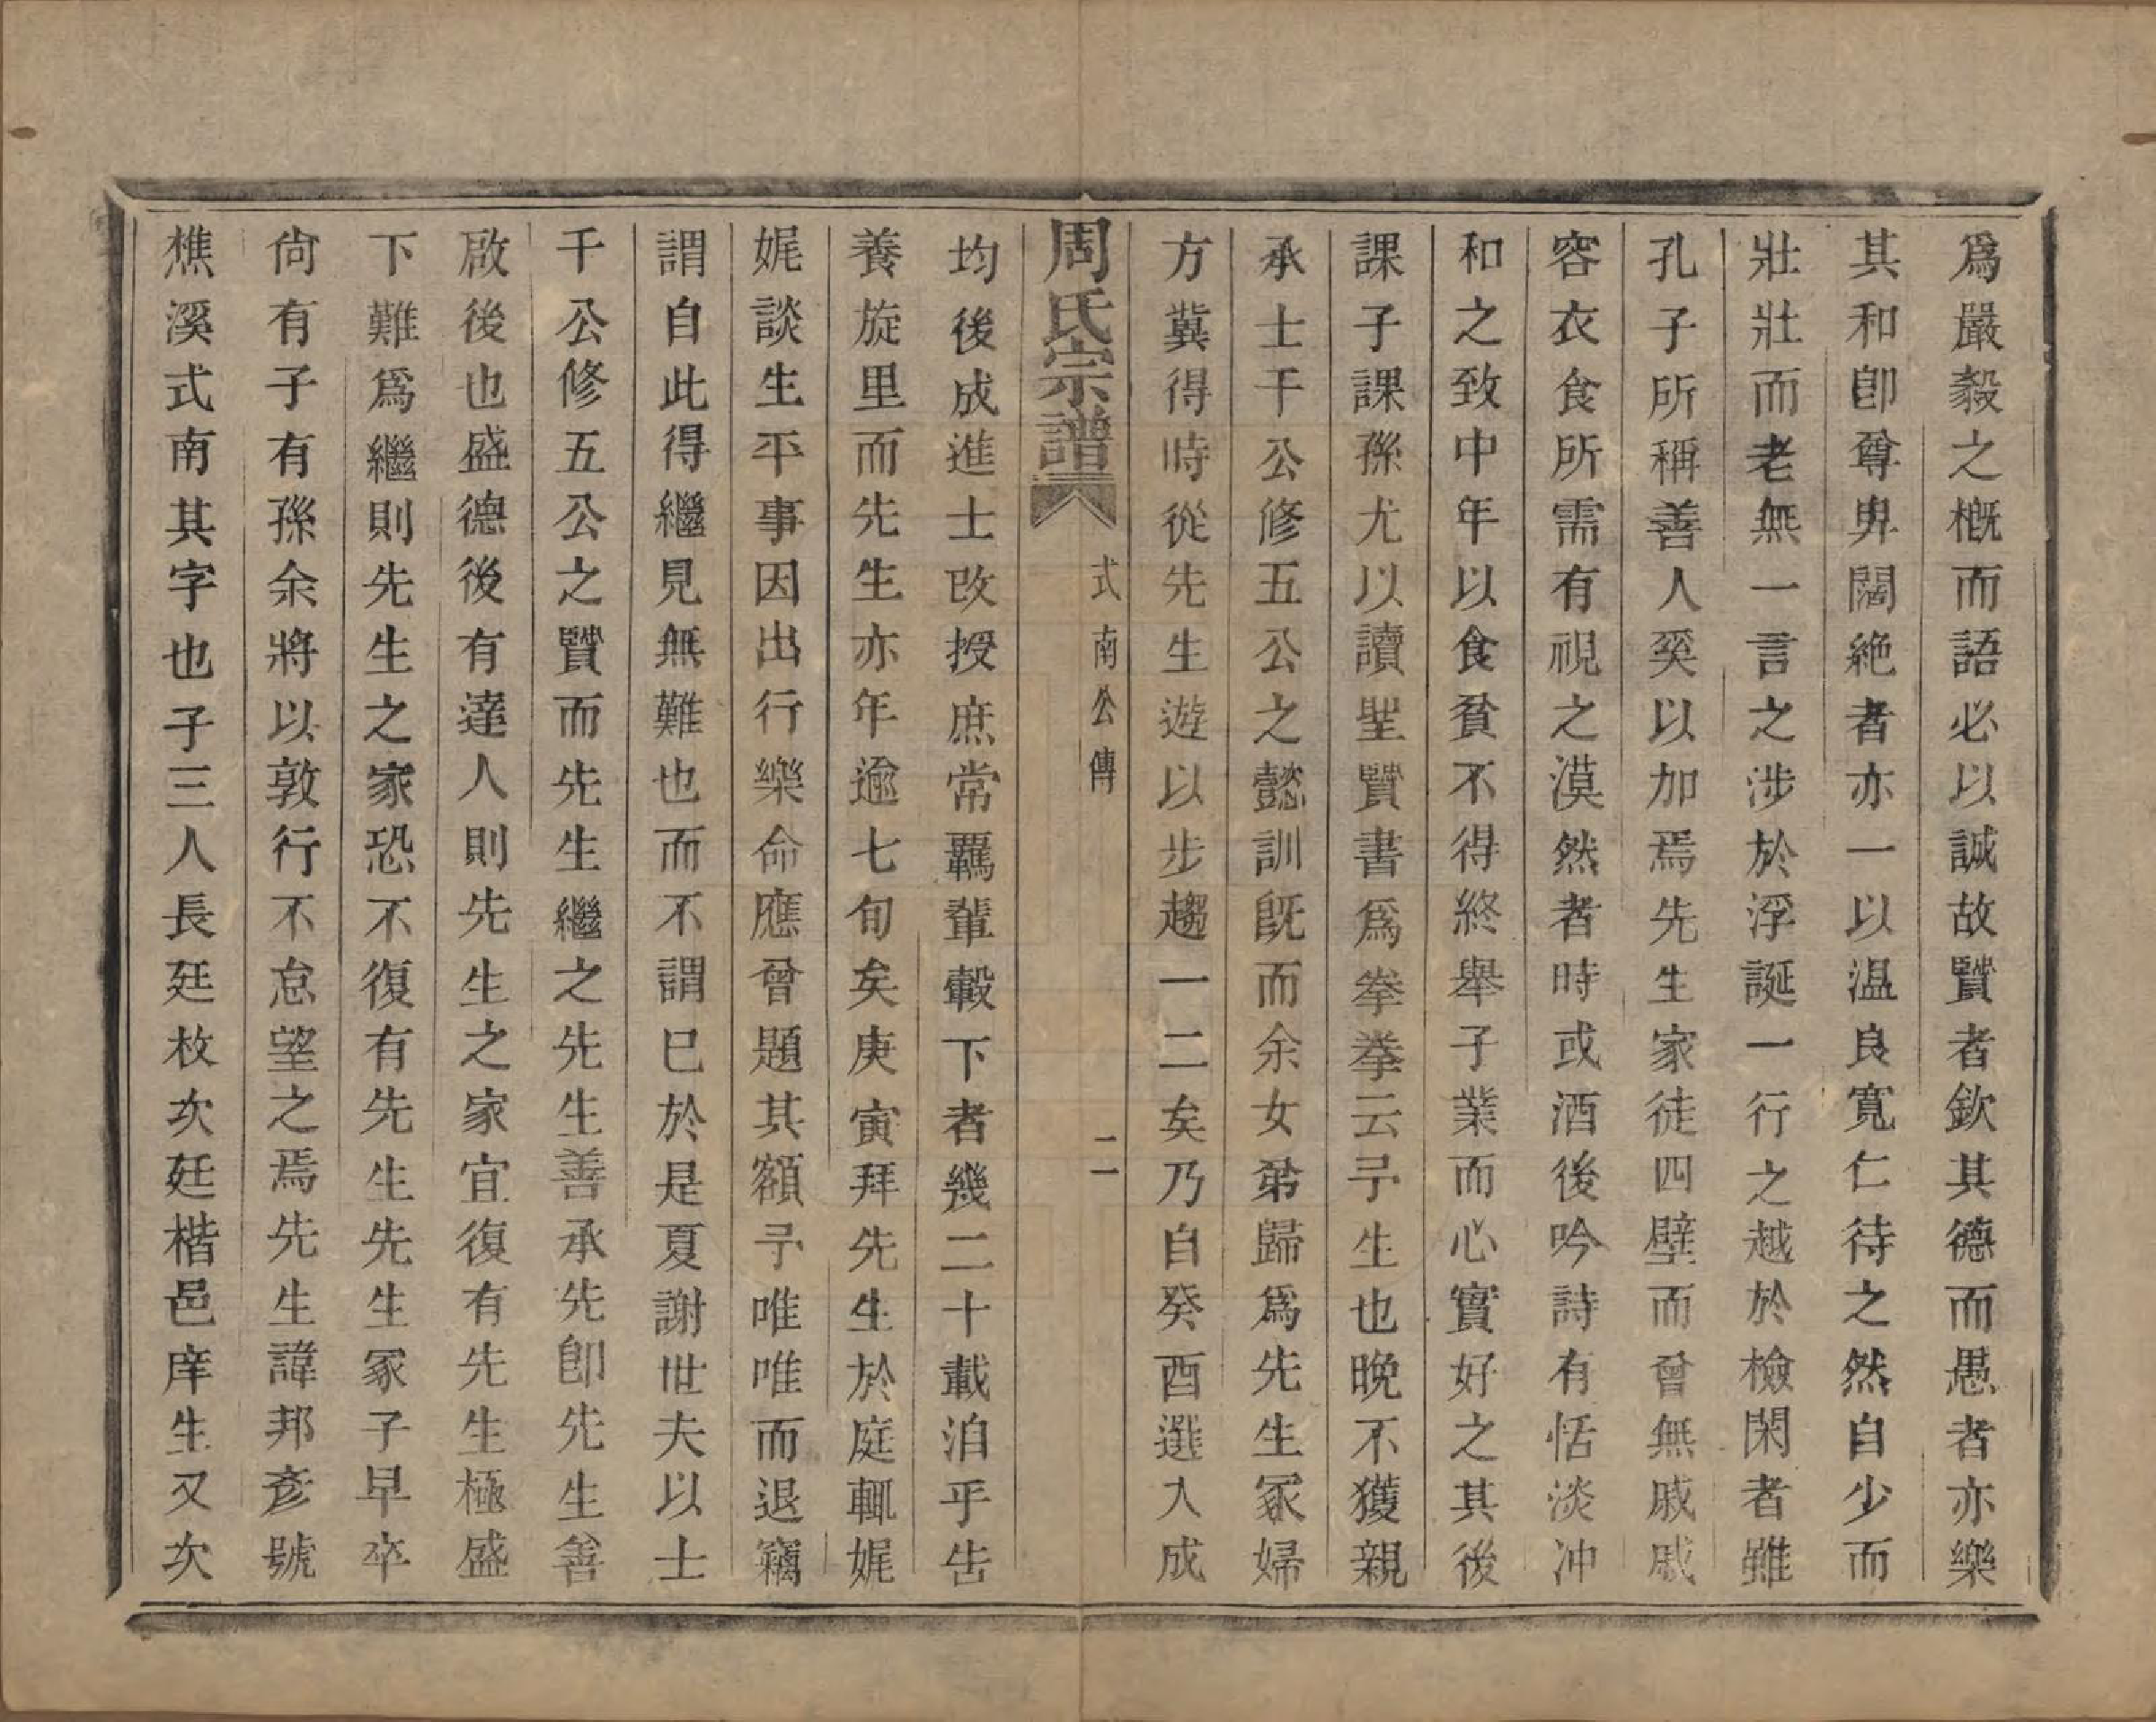 爲嚴毅之槪而語必以誠故賢者欽其德而愚者亦樂
其和卽尊卑闊絶者亦一以溫良寬仁待之然自少而
壯壯而老無一言之涉於浮誕一行之越於檢閑者雖
孔子所稱善人奚以加焉先生家徒四壁而曾無戚戚
容衣食所需有視之漠然者時或酒後吟詩有恬淡冲
和之致中年以食貧不得終舉子業而心實好之其後
課子課孫尤以讀聖賢書爲拳拳云予生也晚不獲親
承士千公修五公之懿訓旣而余女弟歸爲先生冢婦
方冀得時從先生遊以步趨一二矣乃自癸酉選入成
周氏宗譜
式南公傳
二
均後成進士改授庶常羈輦轂下者幾二十載洎乎告
養旋里而先生亦年逾七旬矣庚寅拜先生於庭輒娓
娓談生平事因出行樂命應曾題其額予唯唯而退竊
謂自此得繼見無難也而不謂已於是夏謝世夫以士
千公修五公之賢而先生繼之先生善承先卽先生善
啟後也盛德後有達人則先生之家宜復有先生極盛
下難爲繼則先生之家恐不復有先生先生冢子早卒
尙有子有孫余將以敦行不怠望之焉先生諱邦彥號
樵溪式南其字也子三人長廷枚次廷楷邑庠生又次